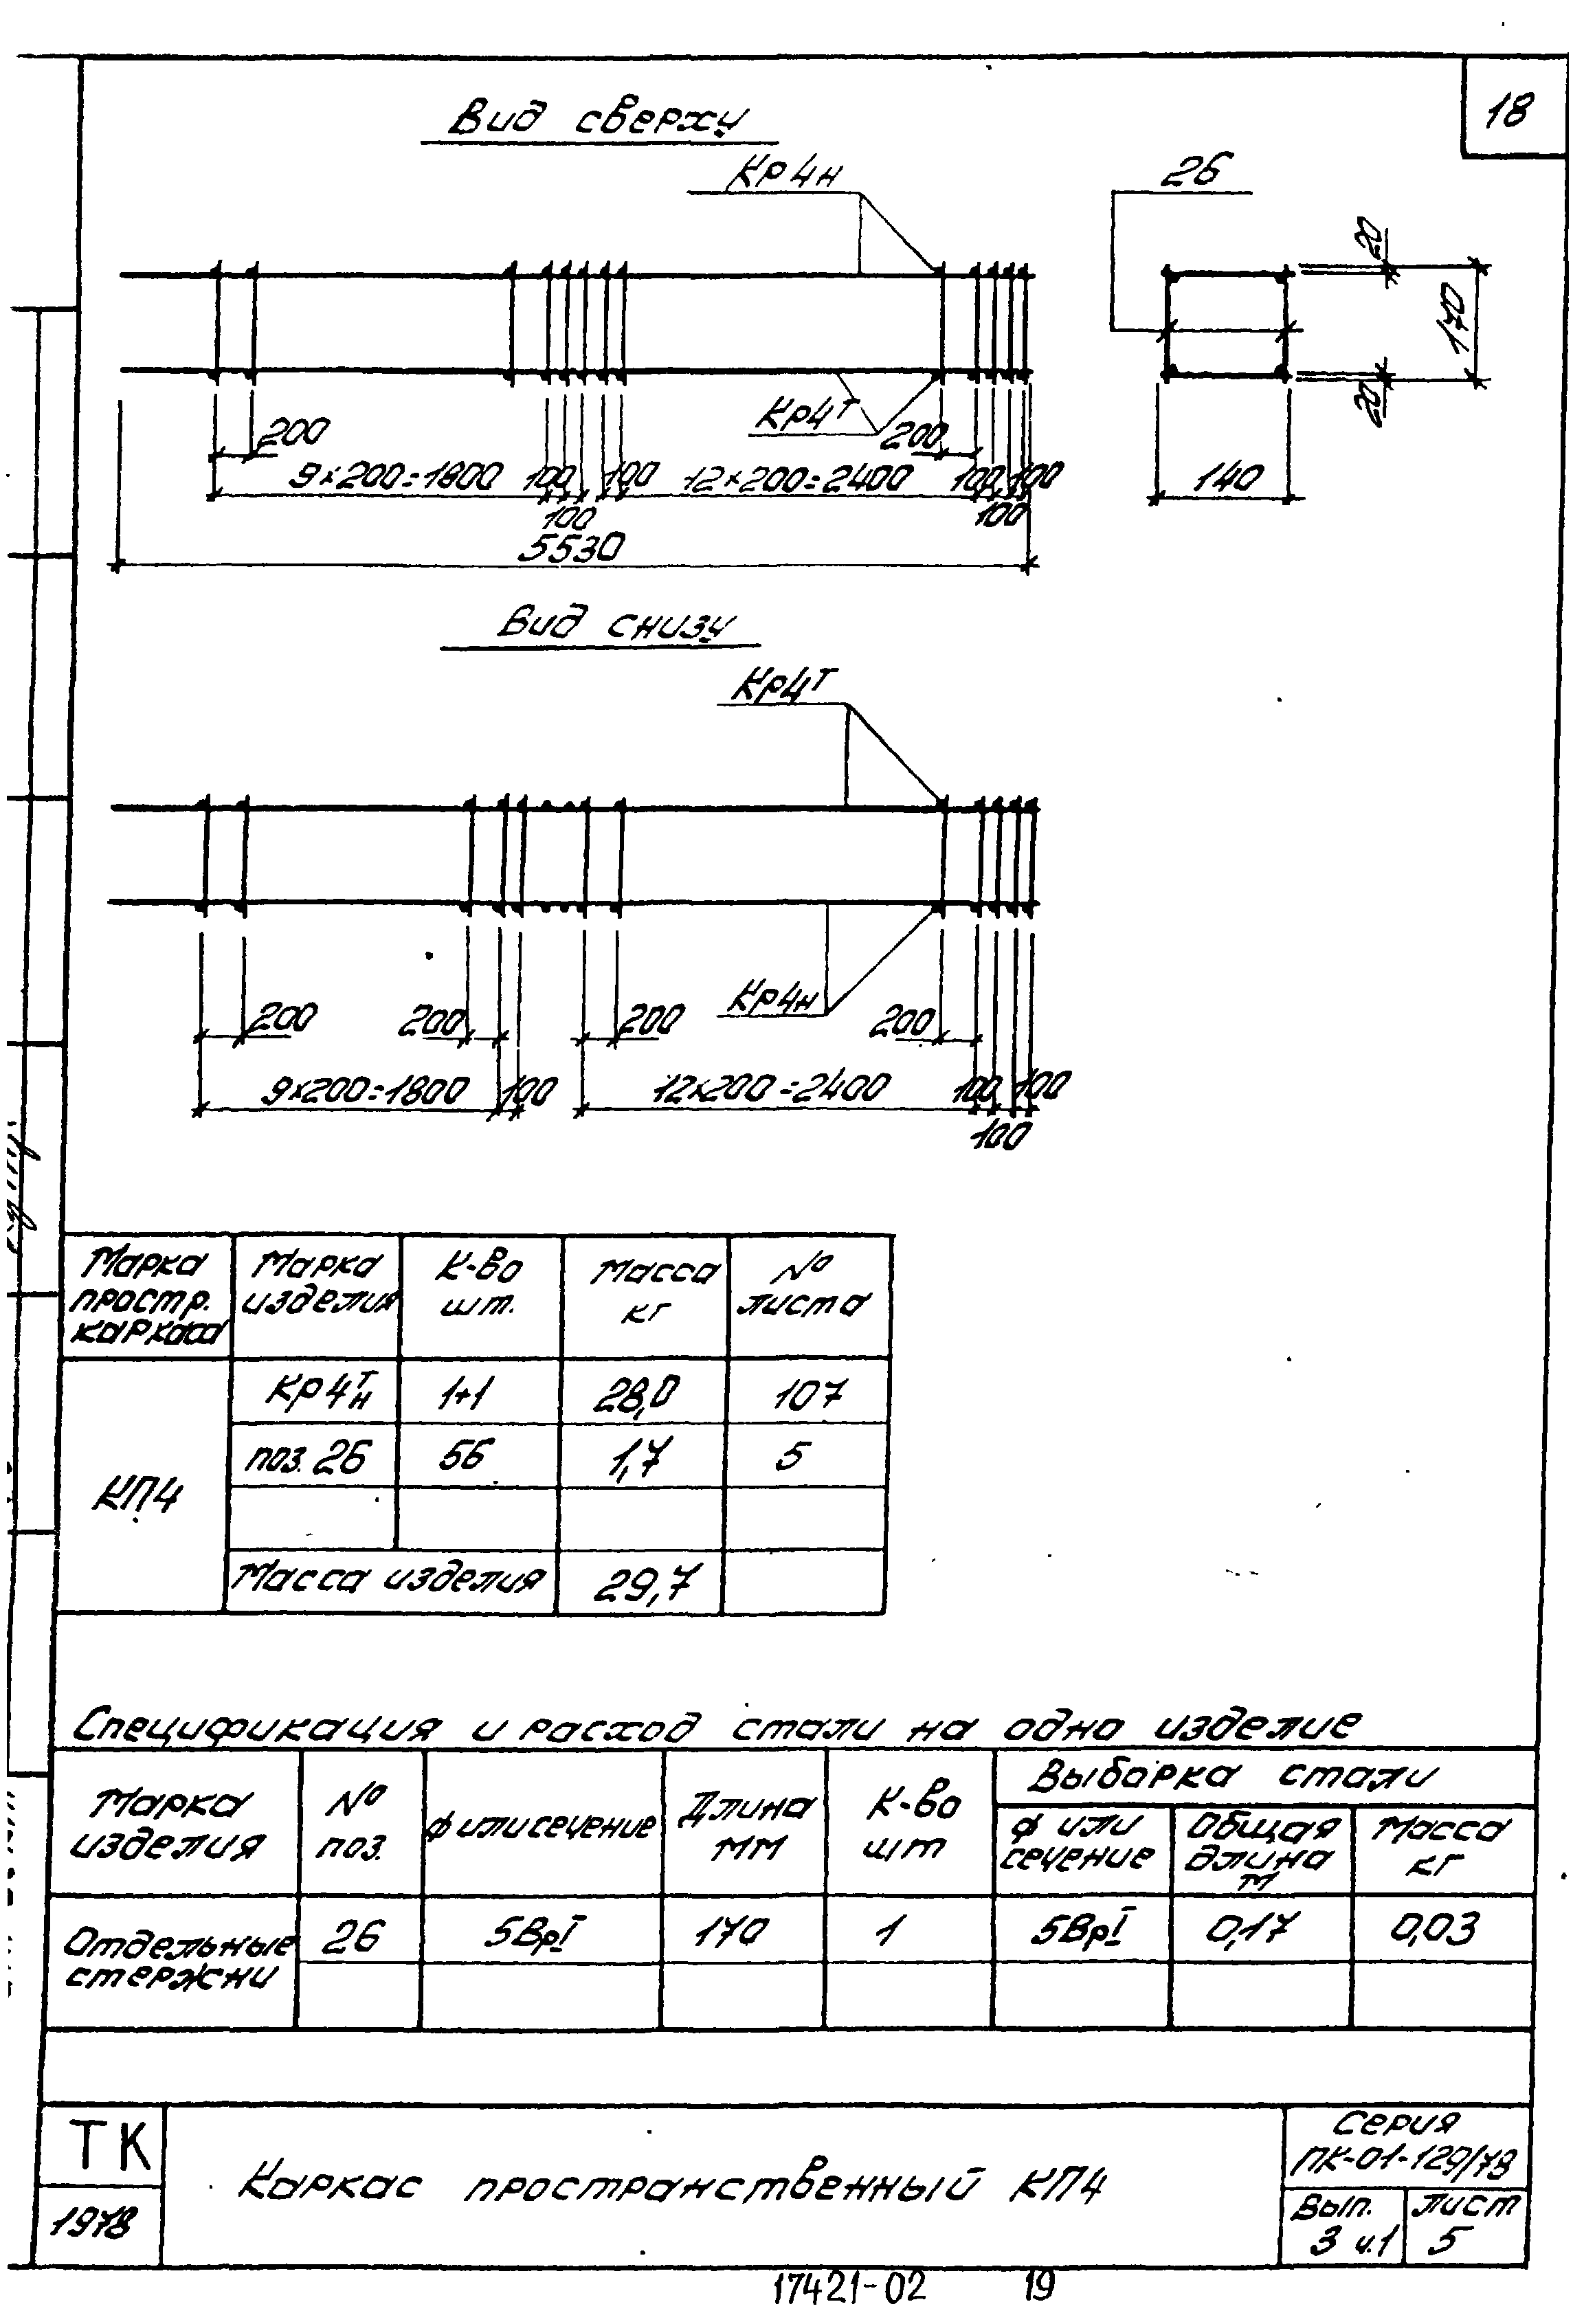 18
Вид сверху
Кр4н
26
20
170
20
140
Кр4т
200
200
9×200=1800
100
100
12×200=2400
100
100
100
100
5530
Вид снизу
Кр4т
Кр4н
200
200
200
200
9×200=1800
100
12×200=2400
100
100
100
Марка простр. каркаса
Марка изделия
К-во шт.
Масса кг
№ листа
КП4
Кр4т/н
1+1
28,0
107
поз. 26
56
1,7
5
Масса изделия
29,7
Спецификация и расход стали на одно изделие
Марка изделия
№ поз.
ф или сечение
Длина мм
К-во шт
Выборка стали
ф или сечение
Общая длина м
Масса кг
Отдельные стержни
26
5ВрI
170
1
5ВрI
0,17
0,03
ТК
1978
Каркас пространственный КП4
Серия
ПК-01-129/78
Вып.
3 ч.1
Лист
5
17421-02
19